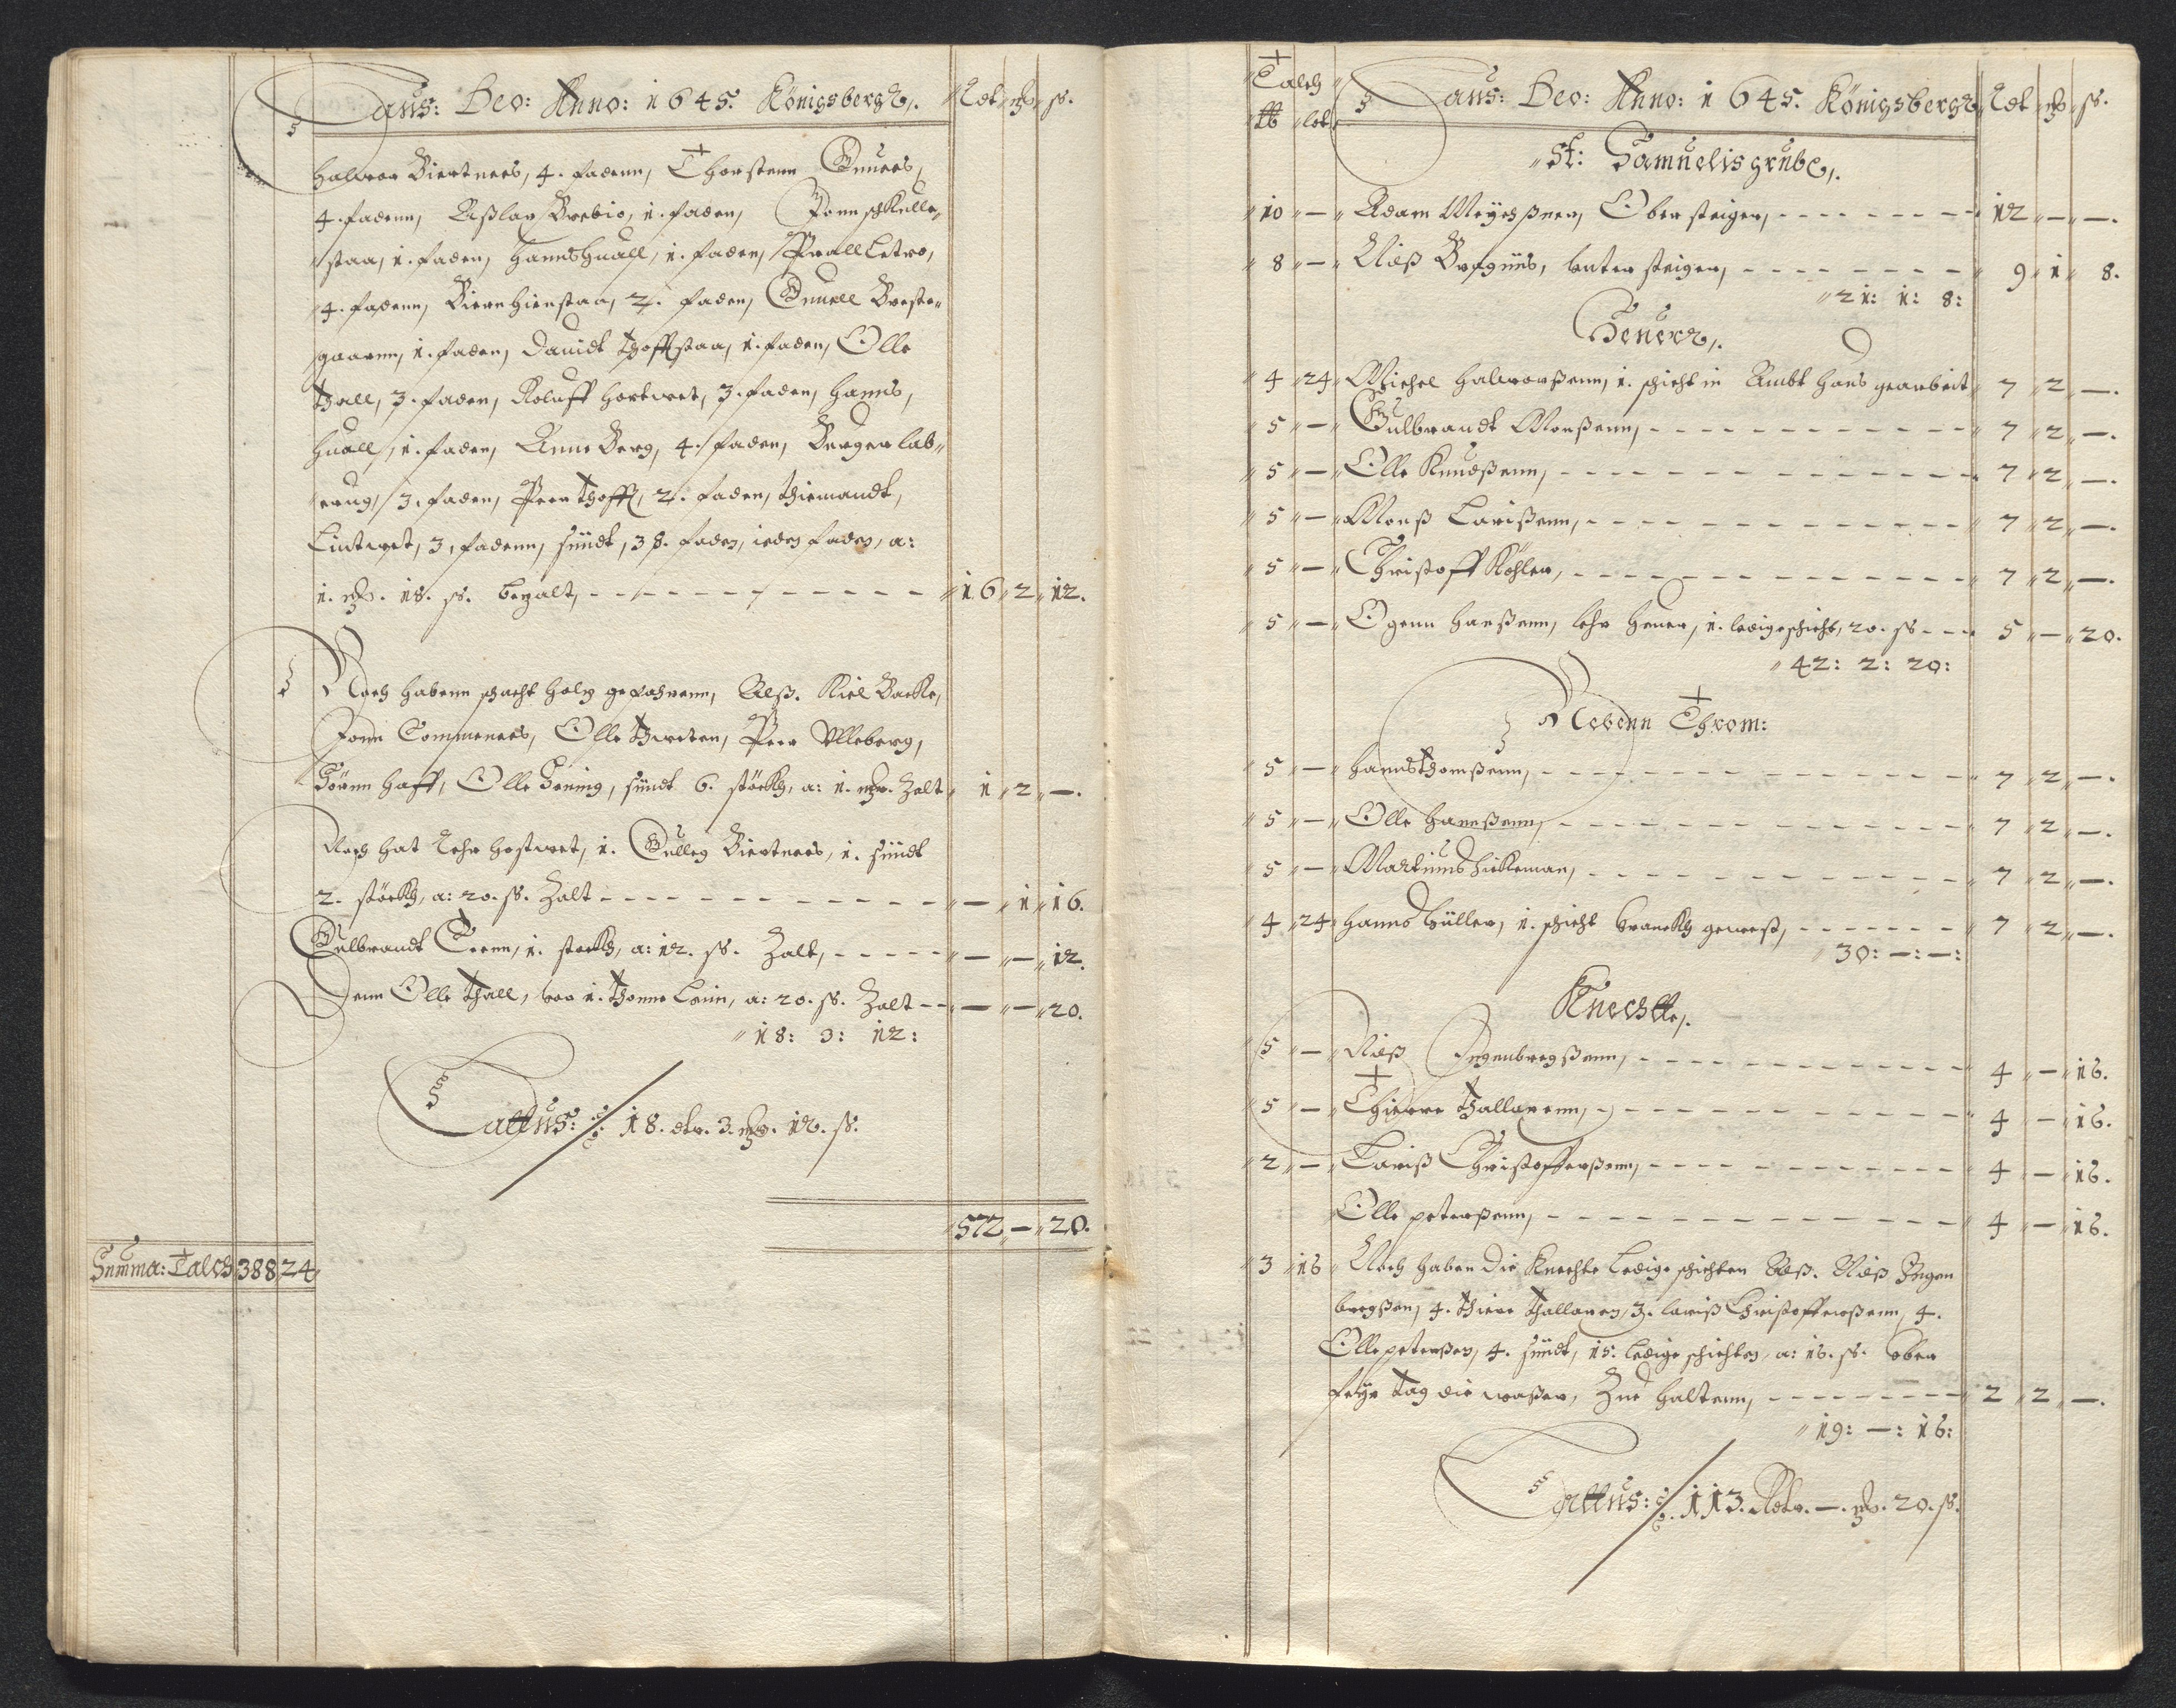 Laus: Deo: Anno: 1645. Königsbergk,. Rdt mß ß.
Halwor Biertnees, 4. faden, Thorstenn Gnuees,
4. fadenn, Aßlag Brebio, 1. faden, Jonn schKulle,
staa, 1. faden, Hanns Huall, 1. faden, Letwo,
4. fadenn, Biern Hienstaa, 2. faden, Gnuell Breste,
gaarnn, 1. faden, Dauidt Thoffstaa, 1. faden, Olle
Thall, 3. faden, Roluff Hortwet, 3. faden, Hanns,
Huall, 1. faden, Anne Berg, 4. faden, Berger lab,
erug, 3. faden, Peer Thoff, 2. faden, Thiemandt,
Lintwet, 3, fadenn, sündt, 38. faden, ieden faden, a:
1. mß. 18. ß. bezalt, 16 2 12.
Noch habenn schacht Holtz gefahrenn, Alß. Kiel Backe,
Jonn Sommenees, Olle Thweten, Peer Ulleberg,
Börnn Haff, Olle Hening, sündt 6. stöckh, a: 1. mß. Zalt 1 2 —.
Noch hat Lehr Hostwet, 1. Gulleg Biertnees, 1. sündt
2. stöckh, a: 20. ß. Zalt — 1 16.
Gulbrandt Teenn, 1. stockh, a: 12. ß. Zalt, — — 12.
Denn Olle Thall, vor 1. Thonne Leim, a: 20. ß. Zalt — — 20.
18: 3: 12:
Lattus: 18. dlr. 3. mß. 12. ß.
572 — 20.
Summa: Talch 388 24
Talch
℔ lot Laus: Deo: Anno: 1645. Königsbergk Rdt mß ß.
St: Samuelis grube,.
10 — Adam Meyeßner, Ober steiger, 12 — —.
8 — Nieß Bregüns, vnter steiger, 9 1 8.
21: 1: 8:
Heuerr,.
4 24 Michel Halworßenn, 1. schicht in Ambt Haus gearbeit 7 2 —.
5 — Gulbrandt Monßenn, 7 2 —.
5 — Olle Knudßenn, 7 2 —.
5 — Monß Larißenn, 7 2 —.
5 — Christoff Köhler, 7 2 —.
5 — Ogenn Hanßenn, lehr Heuer, 1. ledige schicht, 20. ß 5 — 20.
42: 2: 20:
Nebenn Throm:
5 — Hanns Thomßenn, 7 2 —.
5 — Olle Hannßenn, 7 2 —.
5 — Martinus Hickeman, 7 2 —.
4 24 Hanns Hüller, 1. schicht kranckh gewest, 7 2 —.
30: —: —:
Knechtte,.
5 — Nieß Ingenbregßenn, 4 — 16.
5 — Thierre Thallarenn, 4 — 16.
2 — Lariß Christofferßenn, 4 — 16.
Olle peterßenn, 4 — 16.
3 16 Noch haben die Knechte Ledige schichten Alß. Nieß Ingen
bregßen, 4. Thiere Thallaren, 3. lariß Christofferßenn, 4.
Olle peterßen, 4. sündt, 15. ledige schichten, a: 16. ß. ober
feyr Tag die waßer, Zue haltenn, 2 2 —.
19: —: 16:
Lattus: 113. Rdlr. —. mß. 20. ß.